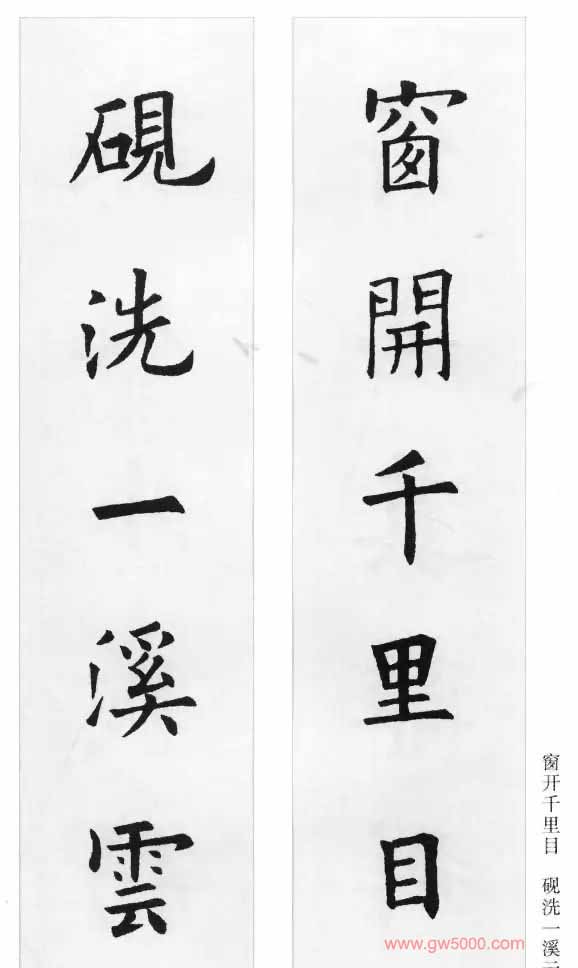 窗開千里目
硯洗一溪雲
窗开千里目 砚洗一溪
www.gw5000.com